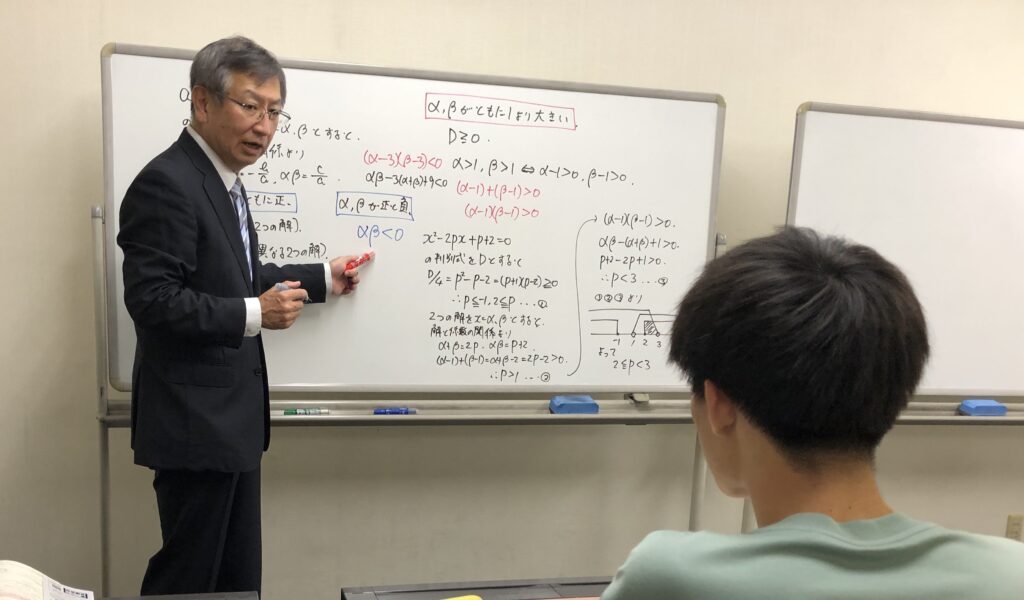 α, βとすると.
係より
-b/a, αβ=c/a
ともに正.
2つの解).
異なる2つの解).
(α-3)(β-3)<0
αβ-3(α+β)+9<0
α, βが正と負.
αβ<0
α, βがともに1より大きい.
D≧0.
α>1, β>1 ⇔ α-1>0, β-1>0.
(α-1)+(β-1)>0
(α-1)(β-1)>0
x²-2px+p+2=0
の判別式をDとすると
D/4=p²-p-2=(p+1)(p-2)≧0
∴p≦-1, 2≦p …①
2つの解をx=α, βとすると.
解と係数の関係より
α+β=2p. αβ=p+2.
(α-1)+(β-1)=α+β-2=2p-2>0.
∴p>1 …②
(α-1)(β-1)>0.
αβ-(α+β)+1>0.
p+2-2p+1>0.
∴p<3 …③
①②③より
-1 1 2 3
よって
2≦p<3